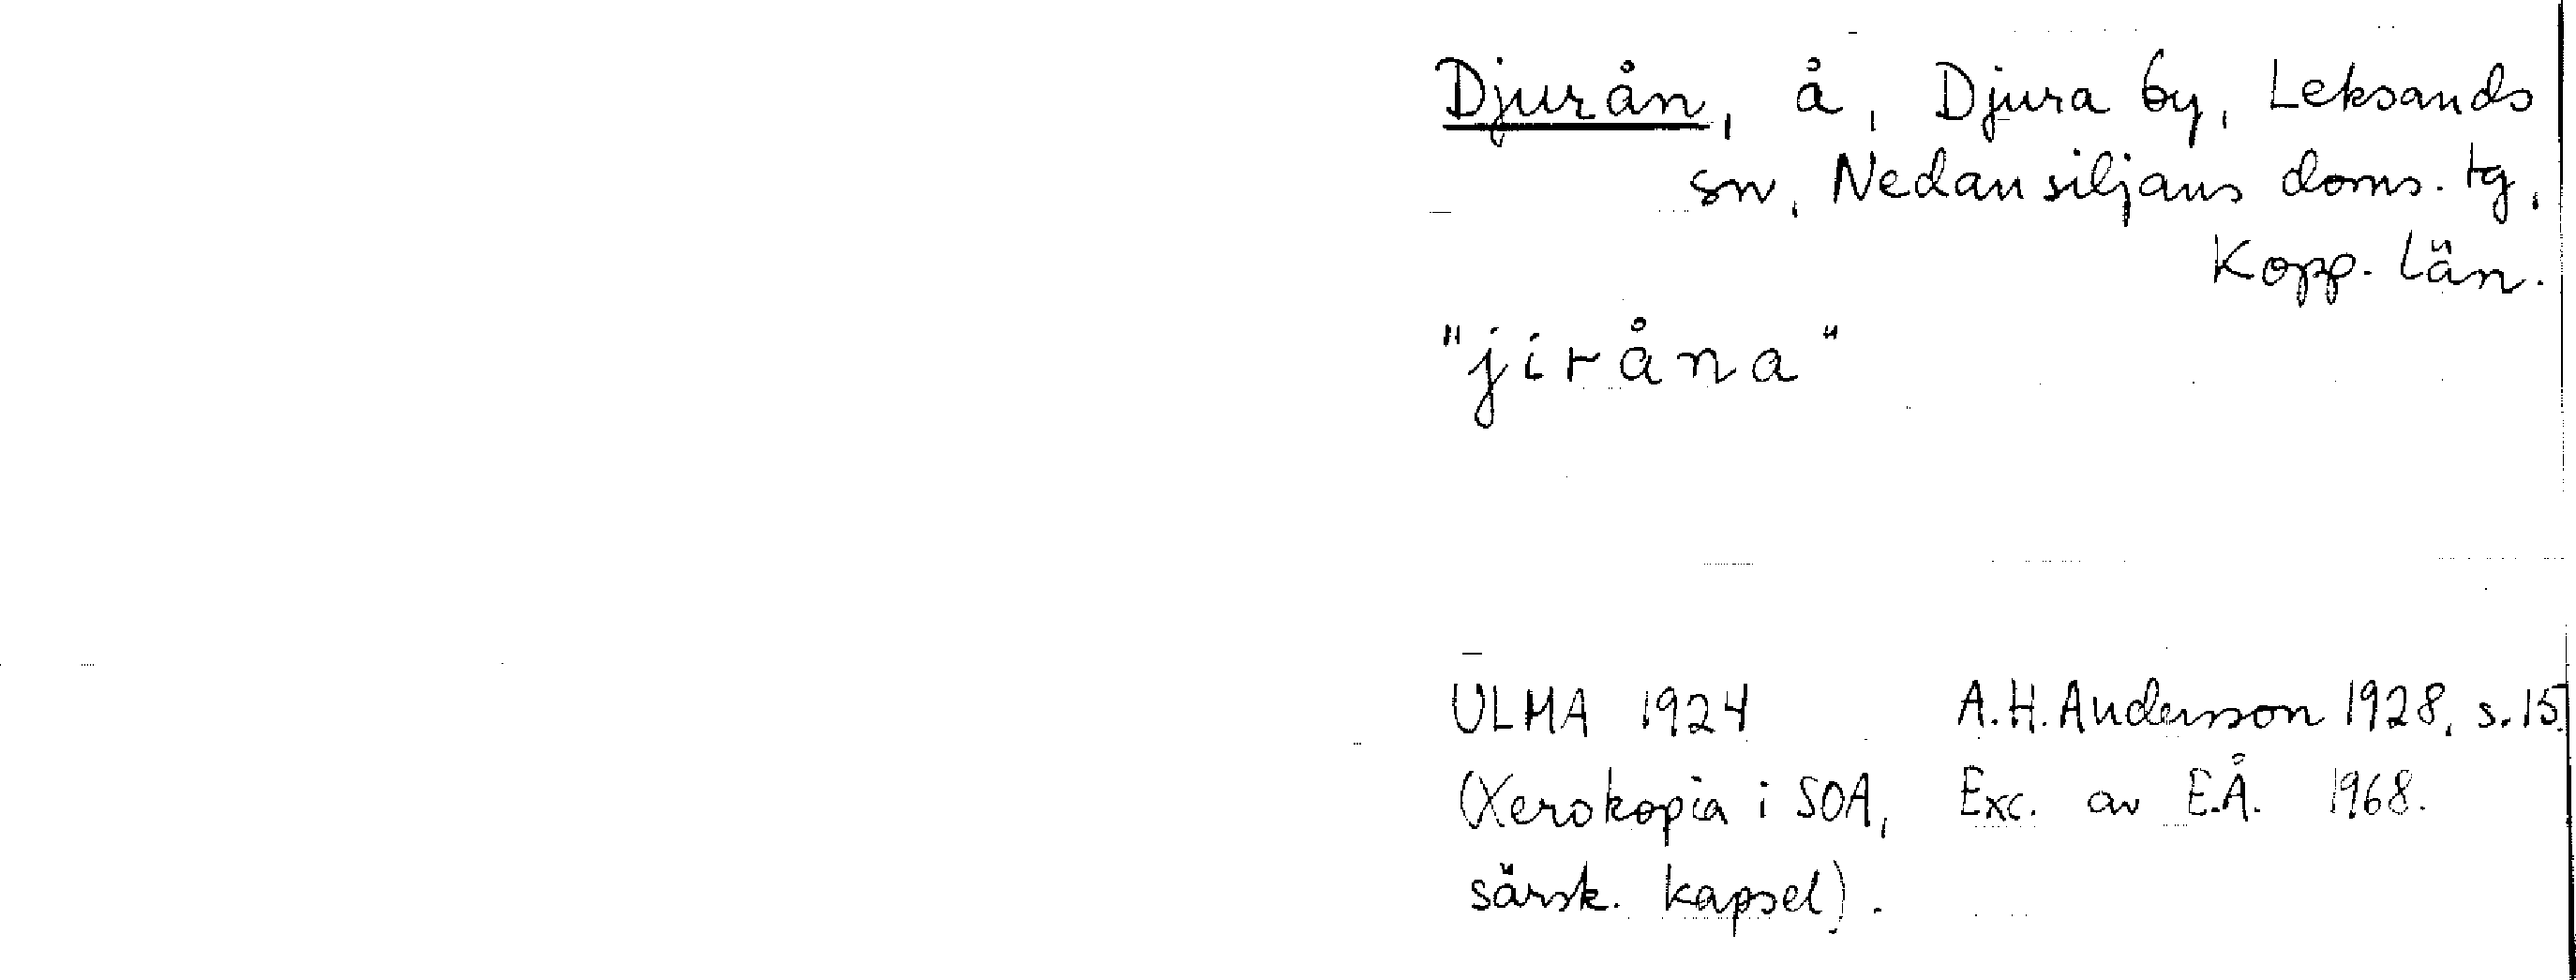 Djurån, å, Djura by, Leksands
sn, Nedansiljans doms. tg,
Kopp. län.
"jiråna"
ULMA 1924 A.H. Andersson 1928, s. 15.
(Xerokopia i SOA, Exc. av E.Å. 1968.
särsk. kapsel).